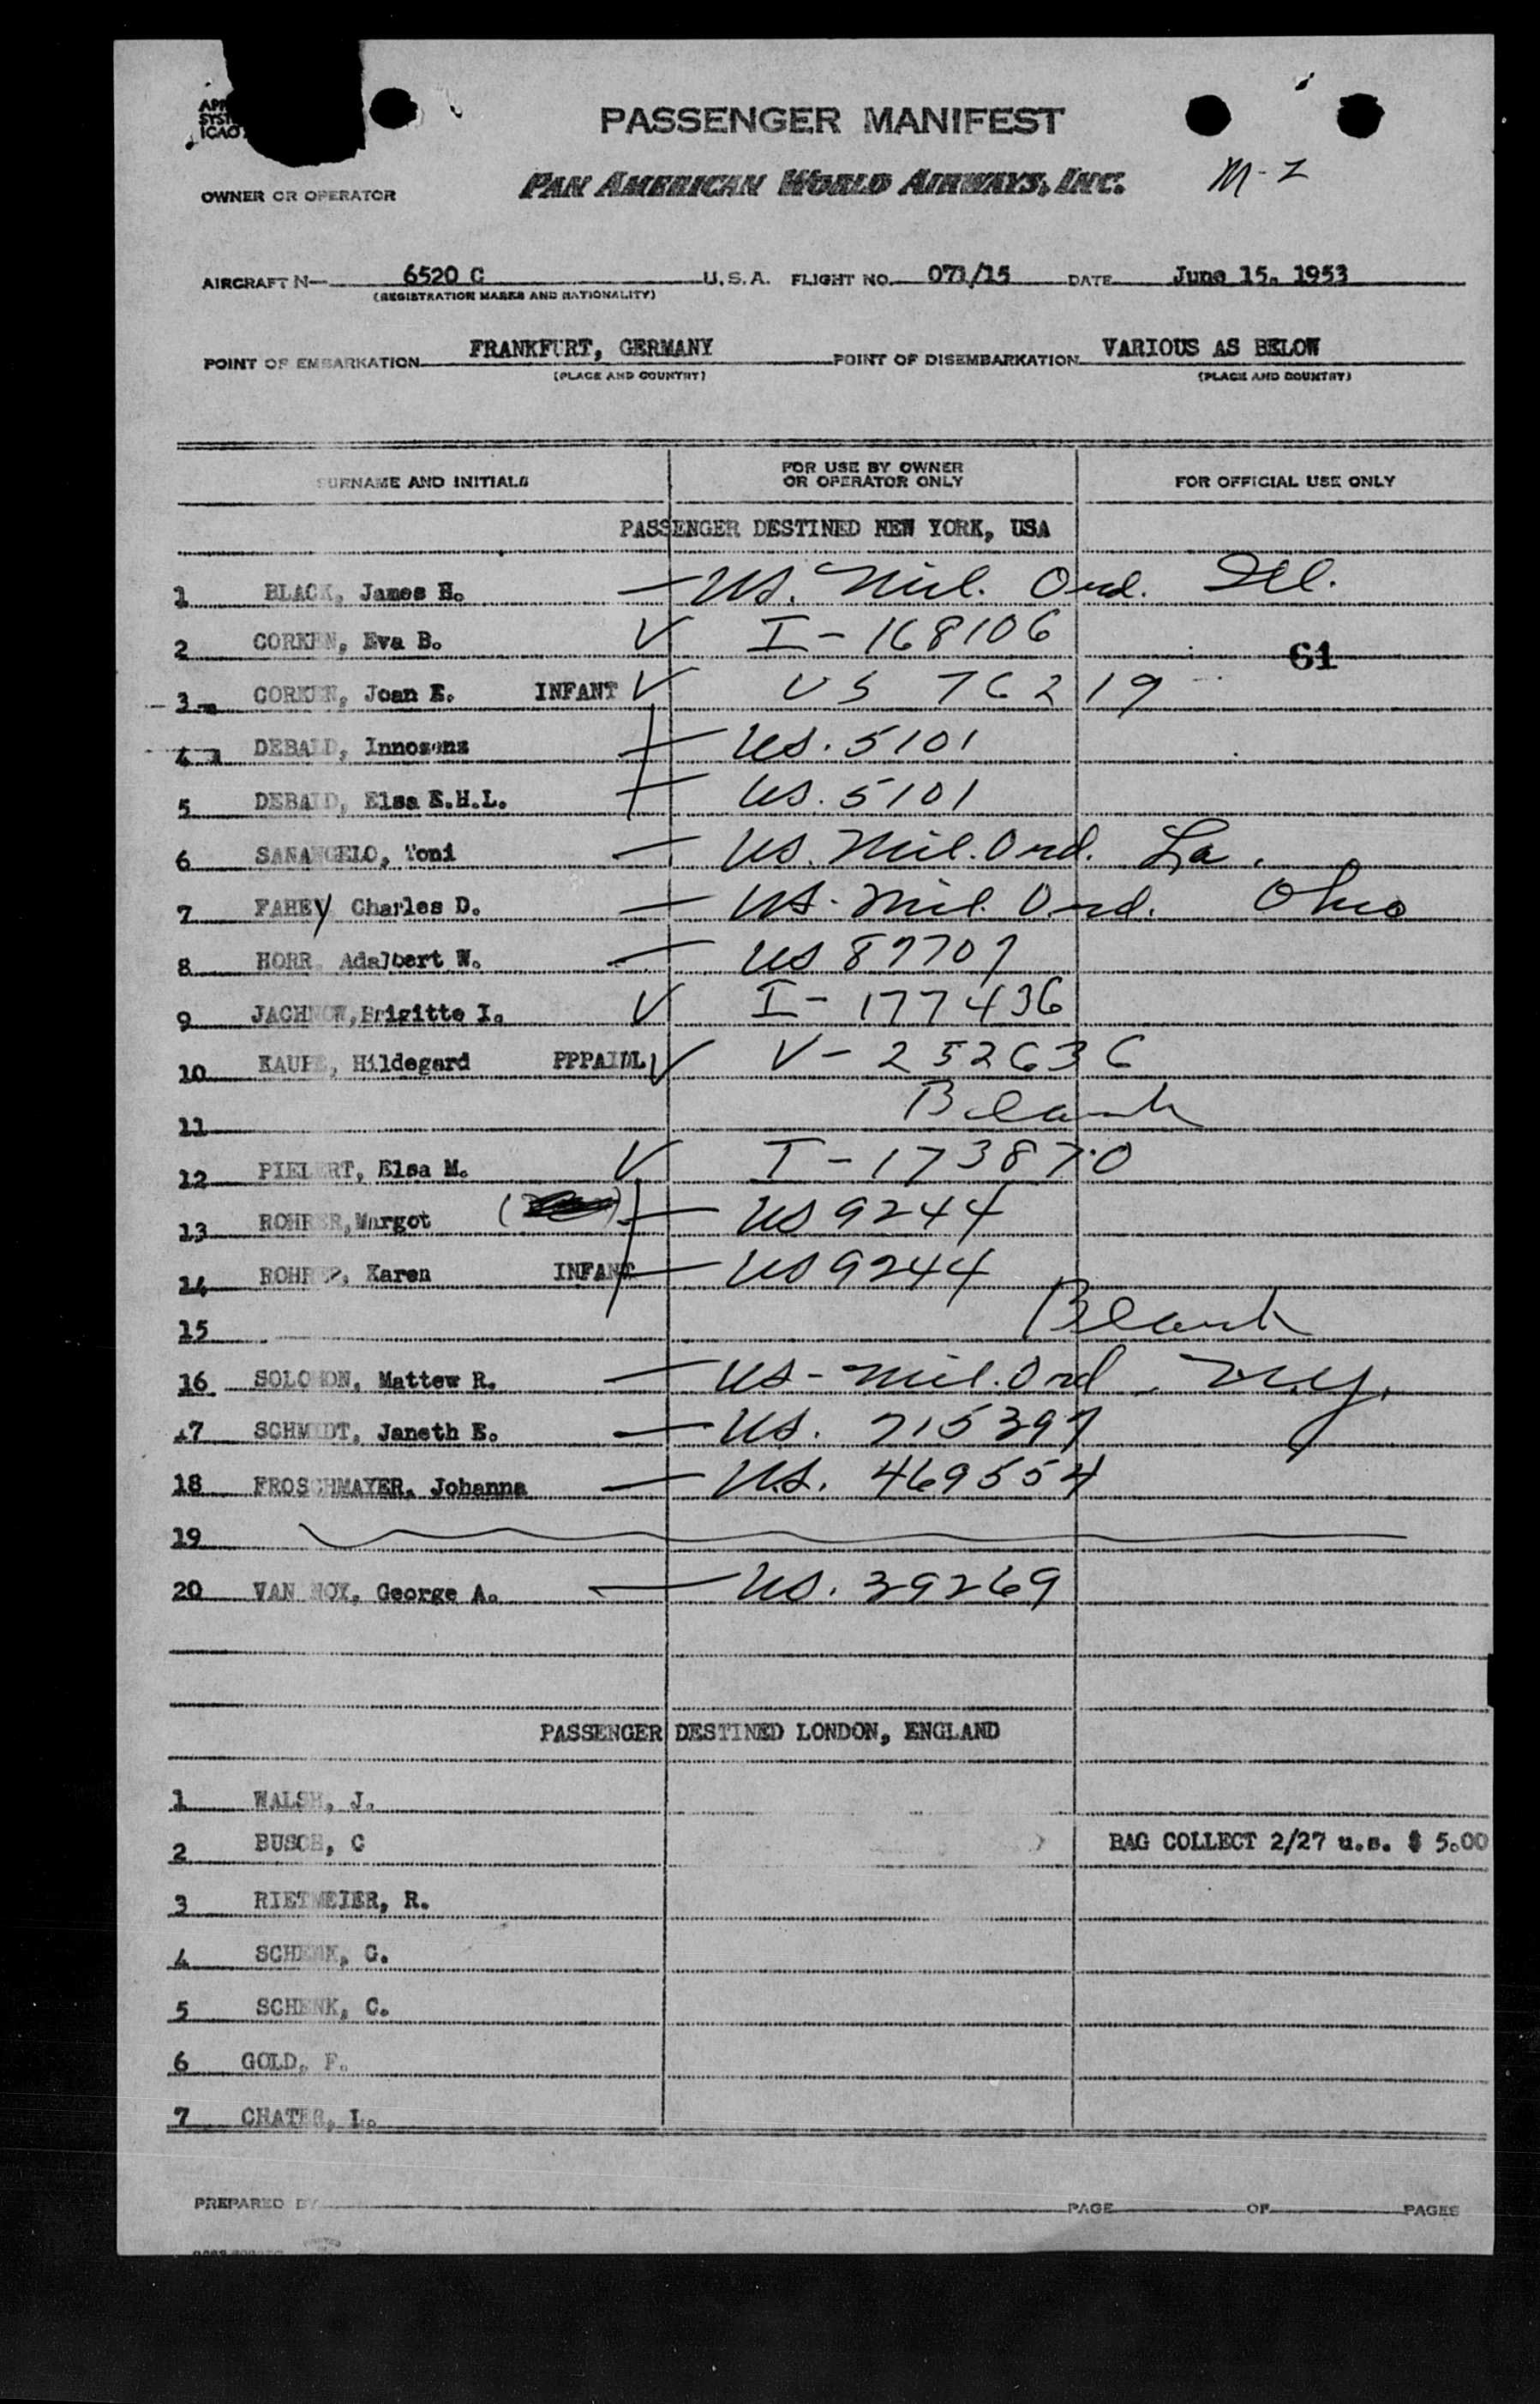 APP
SYST
ICAO
PASSENGER MANIFEST
OWNER OR OPERATOR
PAN AMERICAN WORLD AIRWAYS, INC.
M-Z
AIRCRAFT N— 6520 C U.S.A. FLIGHT NO. 071/15 DATE June 15. 1953
(REGISTRATION MARKS AND NATIONALITY)
POINT OF EMBARKATION FRANKFURT, GERMANY POINT OF DISEMBARKATION VARIOUS AS BELOW
(PLACE AND COUNTRY) (PLACE AND COUNTRY)
SURNAME AND INITIALS FOR USE BY OWNER OR OPERATOR ONLY FOR OFFICIAL USE ONLY
PASSENGER DESTINED NEW YORK, USA
1 BLACK, James H. — US. Mil. Ord. Ill.
2 CORKEN, Eva B. V I-168106
61
3 CORKEN, Joan E. INFANT V US 76219
4 DEBALD, Innosens — US. 5101
5 DEBALD, Elsa E.H.L. — US. 5101
6 SANANGELO, Toni — US. Mil. Ord. La.
7 FAHEY Charles D. — US. Mil. Ord. Ohio
8 HORR, Adalbert W. — US 87707
9 JACHNOW, Brigitte I. V I-177436
10 KAUPE, Hildegard PPPAIDL V V-252636
11 Blank
12 PIELERT, Elsa M. V I-173870
13 ROHRER, Margot — US 9244
14 ROHRER, Karen INFANT — US 9244
15 Blank
16 SOLOMON, Mattew R. — US-Mil. Ord. N.Y.
17 SCHMIDT, Janeth E. — US. 715397
18 FROSCHMAYER, Johanna — US. 469554
19
20 VAN NOY, George A. — US. 39269
PASSENGER DESTINED LONDON, ENGLAND
1 WALSH, J.
2 BUSCH, C BAG COLLECT 2/27 u.s. $ 5.00
3 RIETMEIER, R.
4 SCHENK, G.
5 SCHENK, C.
6 GOLD, F.
7 CHATER, I.
PREPARED BY PAGE OF PAGES